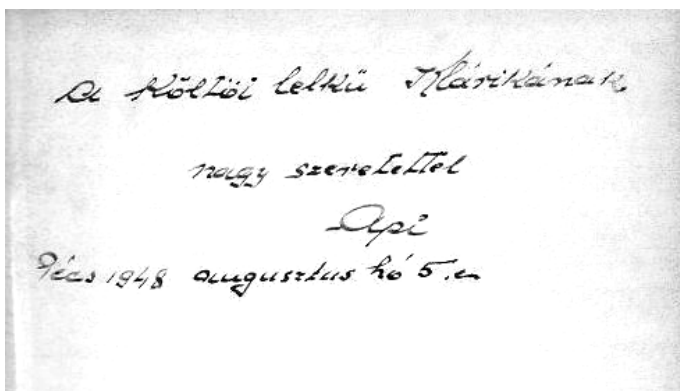 A költői lelkű Klárikának
nagy szeretettel
Api
Pécs 1948 augusztus hó 5.én